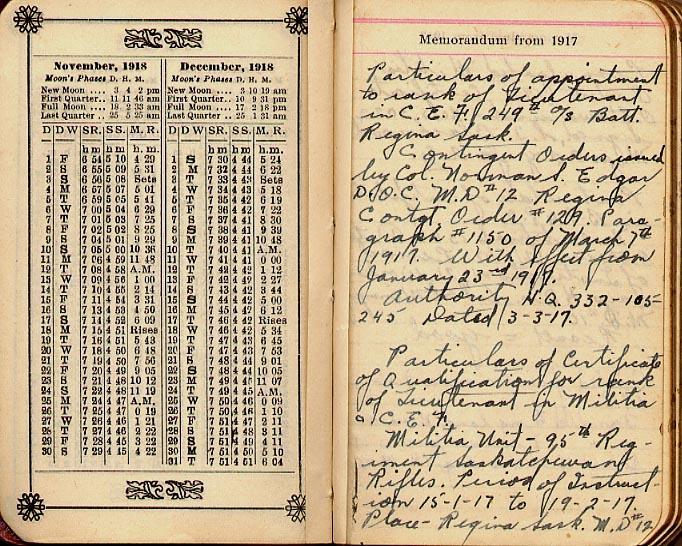 November, 1918
Moon's Phases D. H. M.
New Moon .... 3 4 2 pm
First Quarter.. 11 11 46 am
Full Moon .... 18 2 33 am
Last Quarter.. 25 5 25 am
D D W SR. SS. M. R.
h m h m h m.
1 F 6 54 5 10 4 29
2 S 6 55 5 09 5 31
3 S 6 56 5 08 Sets
4 M 6 57 5 07 5 01
5 T 6 59 5 05 5 41
6 W 7 00 5 04 6 29
7 T 7 01 5 03 7 25
8 F 7 02 5 02 8 25
9 S 7 04 5 01 9 29
10 S 7 05 5 00 10 36
11 M 7 06 4 59 11 48
12 T 7 08 4 58 A.M.
13 W 7 09 4 56 1 00
14 T 7 10 4 55 2 14
15 F 7 11 4 54 3 31
16 S 7 13 4 53 4 50
17 S 7 14 4 52 6 09
18 M 7 15 4 51 Rises
19 T 7 16 4 51 5 43
20 W 7 18 4 50 6 48
21 T 7 19 4 50 7 56
22 F 7 20 4 49 9 05
23 S 7 21 4 48 10 12
24 S 7 22 4 48 11 19
25 M 7 24 4 47 A.M.
26 T 7 25 4 47 0 19
27 W 7 26 4 46 1 21
28 T 7 27 4 46 2 22
29 F 7 28 4 45 3 22
30 S 7 29 4 45 4 22
December, 1918
Moon's Phases D. H. M.
New Moon .... 3 10 19 am
First Quarter.. 10 9 31 pm
Full Moon .... 17 2 18 pm
Last Quarter.. 25 1 31 am
D D W SR. SS. M. R.
h m. h m h m.
1 S 7 30 4 44 5 24
2 M 7 32 4 44 6 22
3 T 7 33 4 43 Sets
4 W 7 34 4 43 5 18
5 T 7 35 4 42 6 19
6 F 7 36 4 42 7 22
7 S 7 37 4 41 8 30
8 S 7 38 4 41 9 39
9 M 7 39 4 41 10 48
10 T 7 40 4 41 A.M.
11 W 7 41 4 41 0 00
12 T 7 42 4 42 1 12
13 F 7 42 4 42 2 27
14 S 7 43 4 42 3 44
15 S 7 44 4 42 5 00
16 M 7 45 4 42 6 12
17 T 7 46 4 42 Rises
18 W 7 46 4 42 5 34
19 T 7 47 4 43 6 45
20 F 7 47 4 43 7 53
21 S 7 48 4 44 9 01
22 S 7 48 4 44 10 05
23 M 7 49 4 45 11 07
24 T 7 49 4 45 A.M.
25 W 7 50 4 46 0 09
26 T 7 50 4 46 1 10
27 F 7 51 4 47 2 11
28 S 7 51 4 48 3 11
29 S 7 51 4 49 4 11
30 M 7 51 4 50 5 10
31 T 7 51 4 50 6 04
Memorandum from 1917
Particulars of appointment
to rank of Lieutenant
in C. E. F. 249th O/S Batt.
Regina Sask.
Contingent Orders issued
by Col. Norman S. Edgar
D.O.C. M.D#12 Regina
Contgt. Order #129. Para-
graph #1150 of March 7th
1917. With effect from
January 23rd 1917.
Authority H.Q. 332-105-
245 Dated 3-3-17.
Particulars of Certificate
of Qualification for rank
of Lieutenant in Militia
C. E. F.
Militia Unit - 95th Reg-
iment Saskatchewan
Rifles. Period of Instruct-
ion 15-1-17 to 19-2-17.
Place - Regina Sask. M.D#12